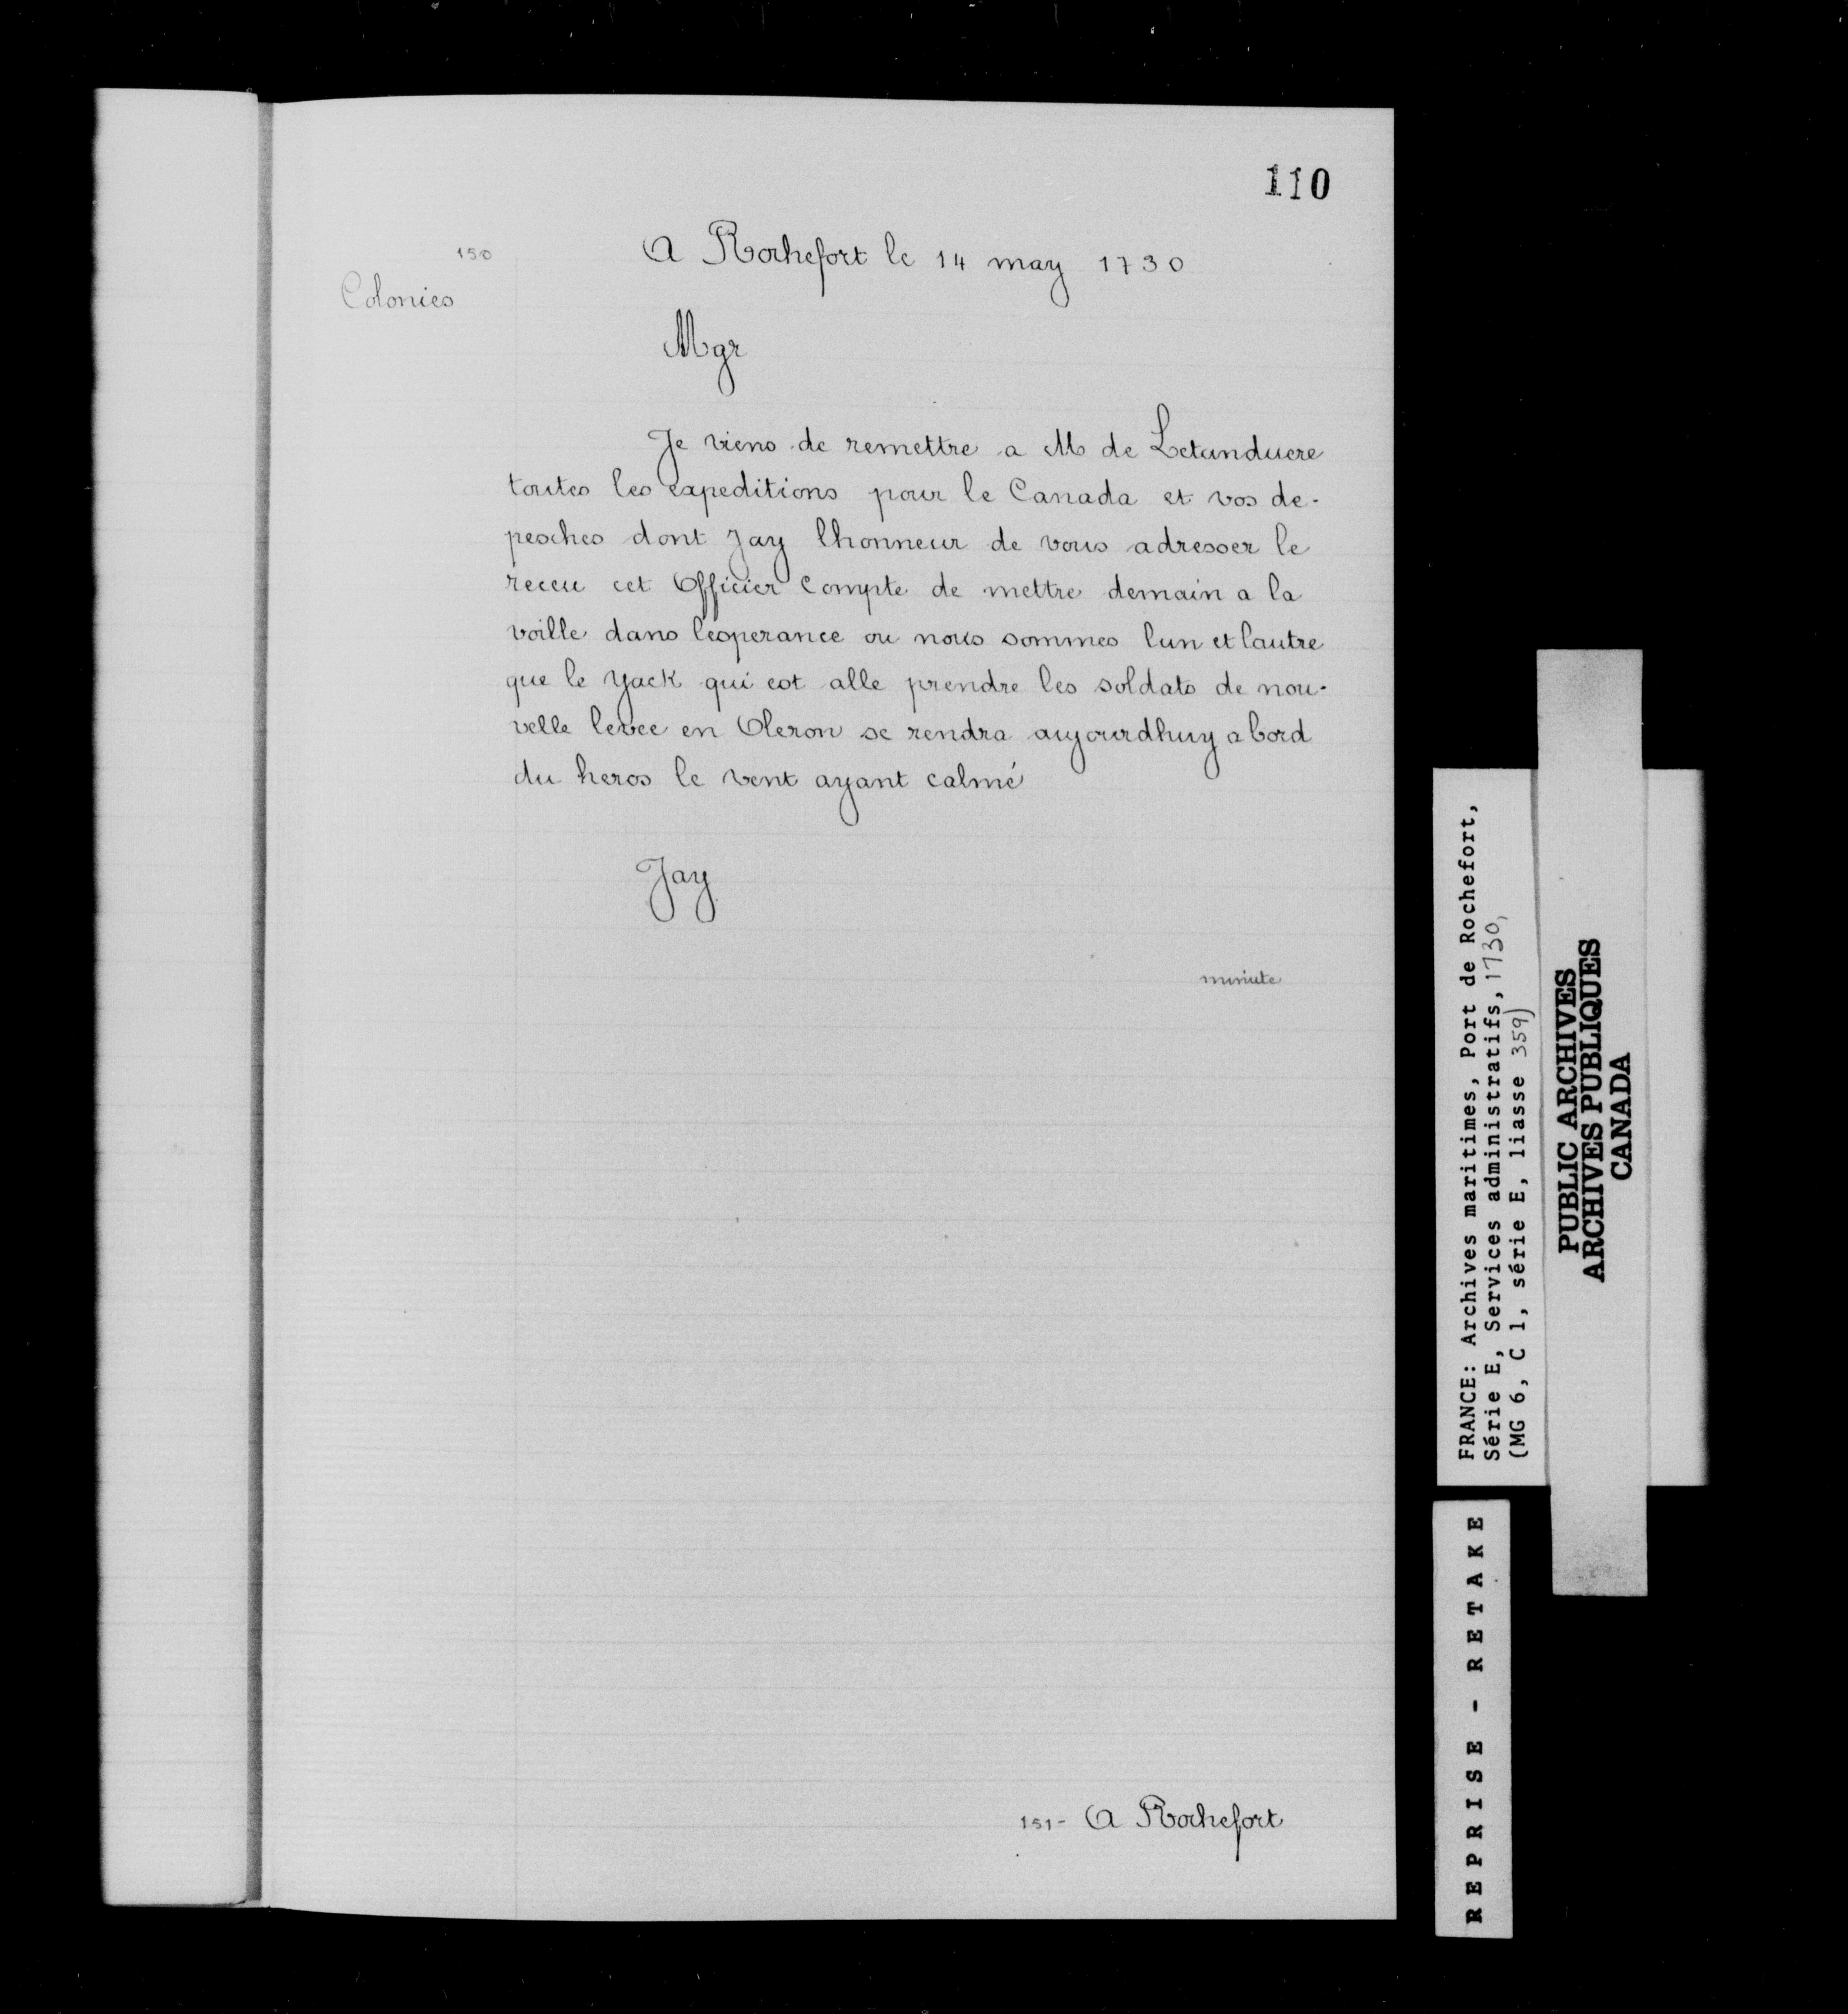 110
150
A Rochefort le 14 may 1730
Colonies
Mgr
Je viens de remettre a M de Letunduere
toutes les expeditions pour le Canada et vos de-
pesches dont Jay lhonneur de vous adresser le
receu cet Officier compte de mettre demain a la
voille dans lesperance ou nous sommes lun et lautre
que le Yack qui est alle prendre les soldats de nou-
velle levee en Oleron se rendra aujourdhuy a bord
du heros le vent ayant calmé
Jay
minute
151- A Rochefort
FRANCE: Archives maritimes, Port de Rochefort,
Série E, Services administratifs, 1730,
(MG 6, C 1, série E, liasse 359)
PUBLIC ARCHIVES
ARCHIVES PUBLIQUES
CANADA
REPRISE - RETAKE